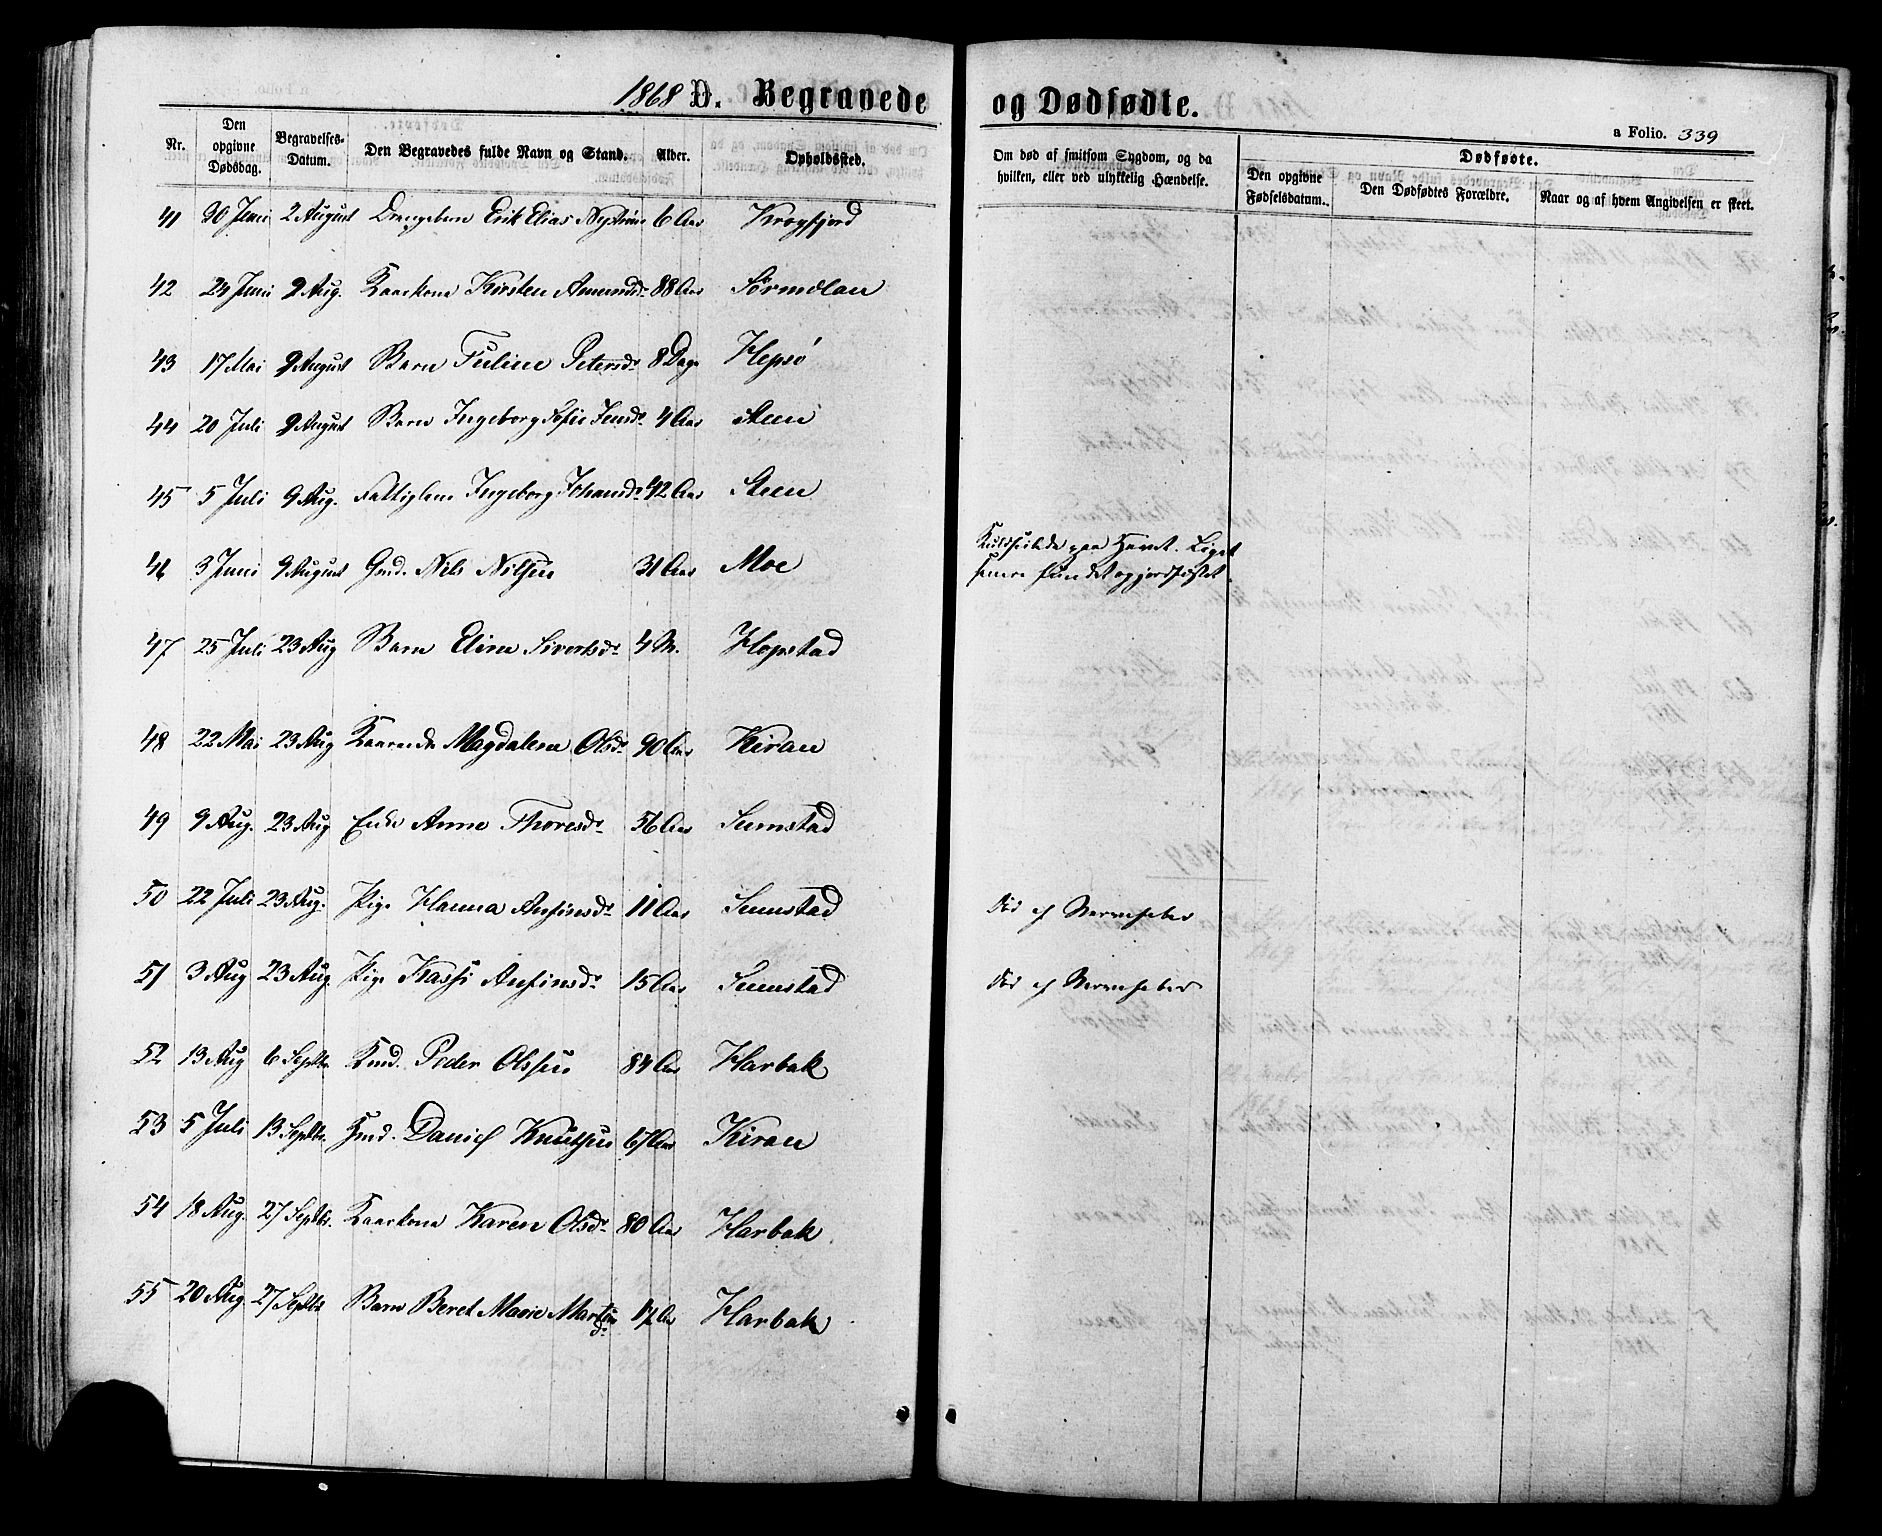 1868 D. Begravede og Dødfødte.
a Folio. 339
Nr. Den opgivne Dødsdag. Begravelses-Datum. Den Begravedes fulde Navn og Stand. Alder. Opholdssted. Om død af smitsom Sygdom, og da hvilken, eller ved ulykkelig Hændelse. Dødfødte. Den opgivne Fødselsdatum. Den Dødfødtes Forældre. Naar og af hvem Angivelsen er skeet.
41 30 Juni 2 August Drengebarn Erik Elias 6 Aar Krogfjord
42 24 Juni 9 Aug. Kaarkone Kirsten Amundsdr 88 Aar Sørmelan
43 17 Mai 9 August Barn Juline Petersdr 8 Dage Hepsø
44 20 Juli 9 August Barn Ingeborg Sofie Jensdr 4 Aar Steen
45 5 Juli 9 Aug. Fattiglem Ingeborg Johansdr 42 Aar Steen
46 3 Juni 9 August Gmd. Nils Nilsen 31 Aar Moe Kuldseilede paa Havet. Liget senere fundet og jordfæstet.
47 25 Juli 23 Aug Barn Elen Sivertsdr 4 M. Hopstad
48 22 Mai 23 Aug Kaarenke Magdalena Olsdr 90 Aar Kiran
49 9 Aug. 23 Aug Enke Anne Thoresdr 56 Aar Sumstad
50 22 Juli 23 Aug. Pige Hanna Anfinsdr 11 Aar Sumstad Død af Nervefeber
51 3 Aug 23 Aug. Pige Kassi Anfinsdr 15 Aar Sumstad Død af Nervefeber
52 13 Aug 6 Septbr. Kmd. Peder Olsen 84 Aar Harbak
53 5 Juli 13 Septbr. Hmd. Daniel Knutsen 67 Aar Kiran
54 18 Aug. 27 Septbr. Kaarkone Karen Olsdr 80 Aar Harbak
55 20 Aug 27 Septbr Barn Beret Marie Martin dr Aar Harbak